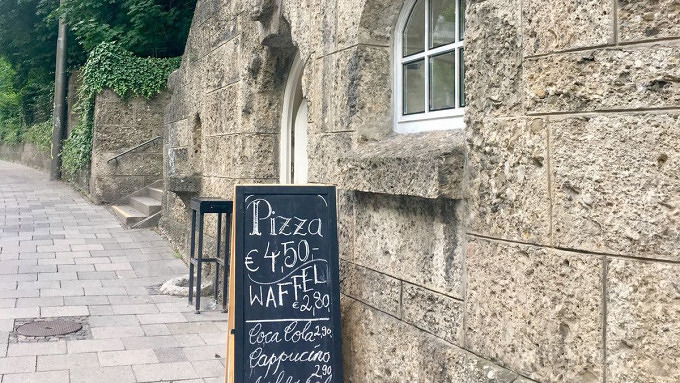 Pizza
€ 4,50-
WAFFEL
€ 2,80
Coca Cola 2,90
Cappucino
2,90